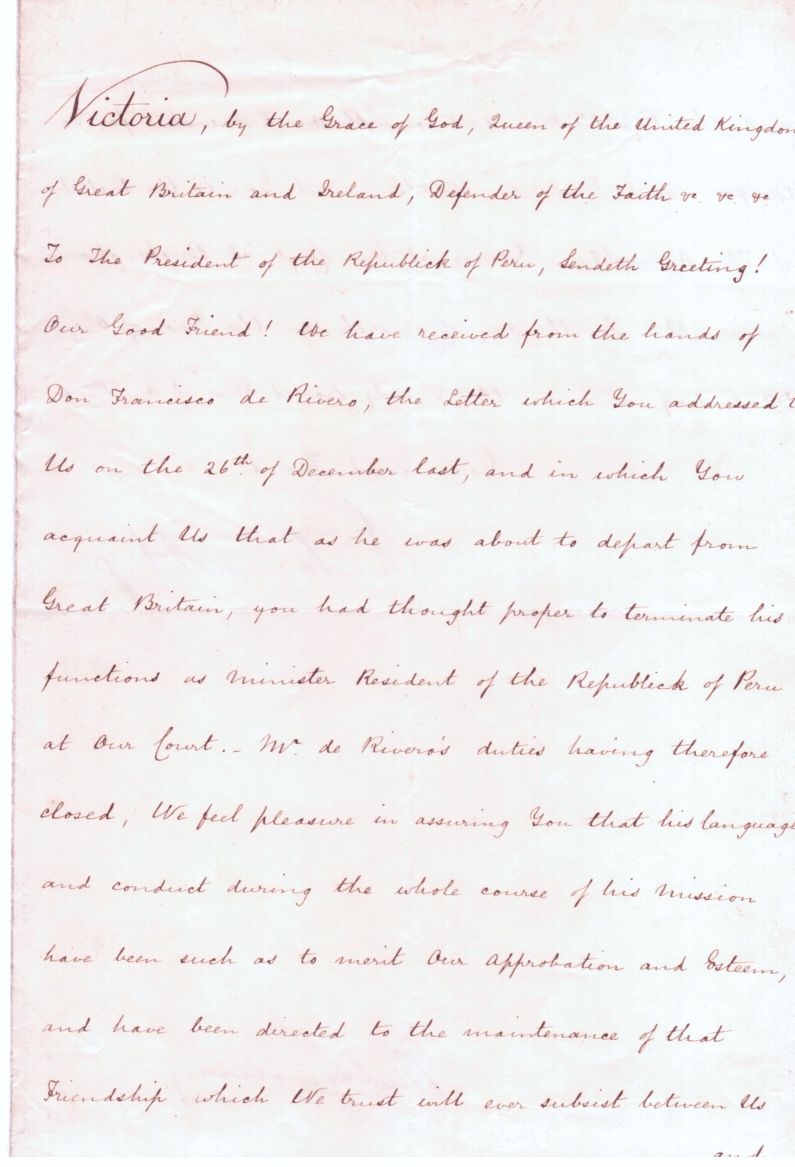 Victoria, by the Grace of God, Queen of the United Kingdom
of Great Britain and Ireland, Defender of the Faith &c. &c. &c.
To The President of the Republick of Peru, Sendeth Greeting!
Our Good Friend! We have received from the hands of
Don Francisco de Rivero, the Letter which You addressed t
Us on the 26th of December last, and in which You
acquaint Us that as he was about to depart from
Great Britain, you had thought proper to terminate his
functions as Minister Resident of the Republick of Peru
at Our Court. – Mr. de Rivero's duties having therefore
closed, We feel pleasure in assuring You that his language
and conduct during the whole course of his Mission
have been such as to merit Our Approbation and Esteem,
and have been directed to the maintenance of that
Friendship which We trust will ever subsist between Us
and